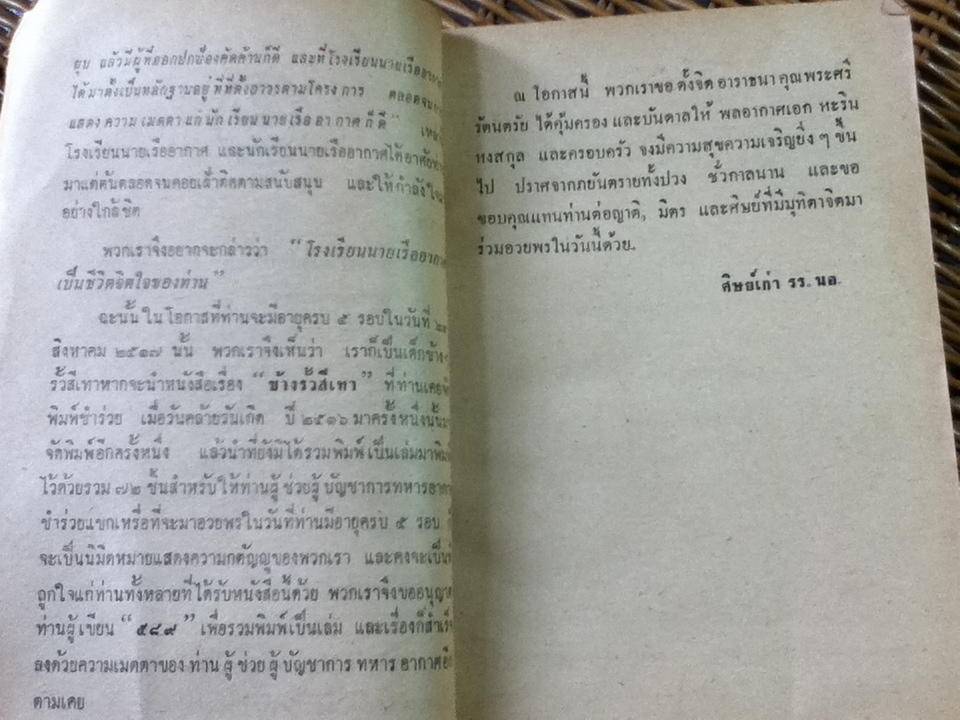 ยุบ แล้วมีผู้ที่ออกปกป้องคัดค้านก็ดี และที่โรงเรียนนายเรืออากาศ
ได้มาตั้งเป็นหลักฐานอยู่ที่ที่ตั้งถาวรตามโครงการ ตลอดจน
แสดงความเมตตาแก่นักเรียนนายเรืออากาศก็ดี"
โรงเรียนนายเรืออากาศ และนักเรียนนายเรืออากาศได้อาศัย
มาแต่ต้นตลอดจนคอยเฝ้าติดตามสนับสนุน และให้กำลังใจ
อย่างใกล้ชิด
พวกเราจึงอยากจะกล่าวว่า "โรงเรียนนายเรืออากาศ
เป็นชีวิตจิตใจของท่าน"
ฉะนั้น ในโอกาสที่ท่านจะมีอายุครบ ๕ รอบในวันที่
สิงหาคม ๒๕๑๗ นั้น พวกเราจึงเห็นว่า เราก็เป็นเด็กข้าง
รั้วสีเทาหากจะนำหนังสือเรื่อง "ข้างรั้วสีเทา" ที่ท่านเคย
พิมพ์ชำร่วย เมื่อวันคล้ายวันเกิด ปี ๒๕๑๖ มาครั้งหนึ่งนั้น
จัดพิมพ์อีกครั้งหนึ่ง แล้วนำที่ยังมิได้รวมพิมพ์เป็นเล่มมาพิมพ์
ไว้ด้วยรวม ๗๒ ชิ้นสำหรับให้ท่านผู้ช่วยผู้บัญชาการทหารอากาศ
ชำร่วยแขกเหรื่อที่จะมาอวยพรในวันที่ท่านมีอายุครบ ๕ รอบ
จะเป็นนิมิตหมายแสดงความกตัญญูของพวกเรา และคงจะเป็นที่
ถูกใจแก่ท่านทั้งหลายที่ได้รับหนังสือนี้ด้วย พวกเราจึงขออนุญาต
ท่านผู้เขียน "๕๘๙" เพื่อรวมพิมพ์เป็นเล่ม และเรื่องก็สำเร็จ
ลงด้วยความเมตตาของ ท่าน ผู้ ช่วย ผู้ บัญชาการ ทหาร อากาศ
ตามเคย
ณ โอกาสนี้ พวกเราขอตั้งจิตอาราธนาคุณพระศรี
รัตนตรัย ได้คุ้มครอง และบันดาลให้ พลอากาศเอก หะริน
หงสกุล และครอบครัว จงมีความสุขความเจริญยิ่ง ๆ ขึ้น
ไป ปราศจากภยันตรายทั้งปวง ชั่วกาลนาน และขอ
ขอบคุณแทนท่านต่อญาติ, มิตร และศิษย์ที่มีมุทิตาจิตมา
ร่วมอวยพรในวันนี้ด้วย.
ศิษย์เก่า รร. นอ.